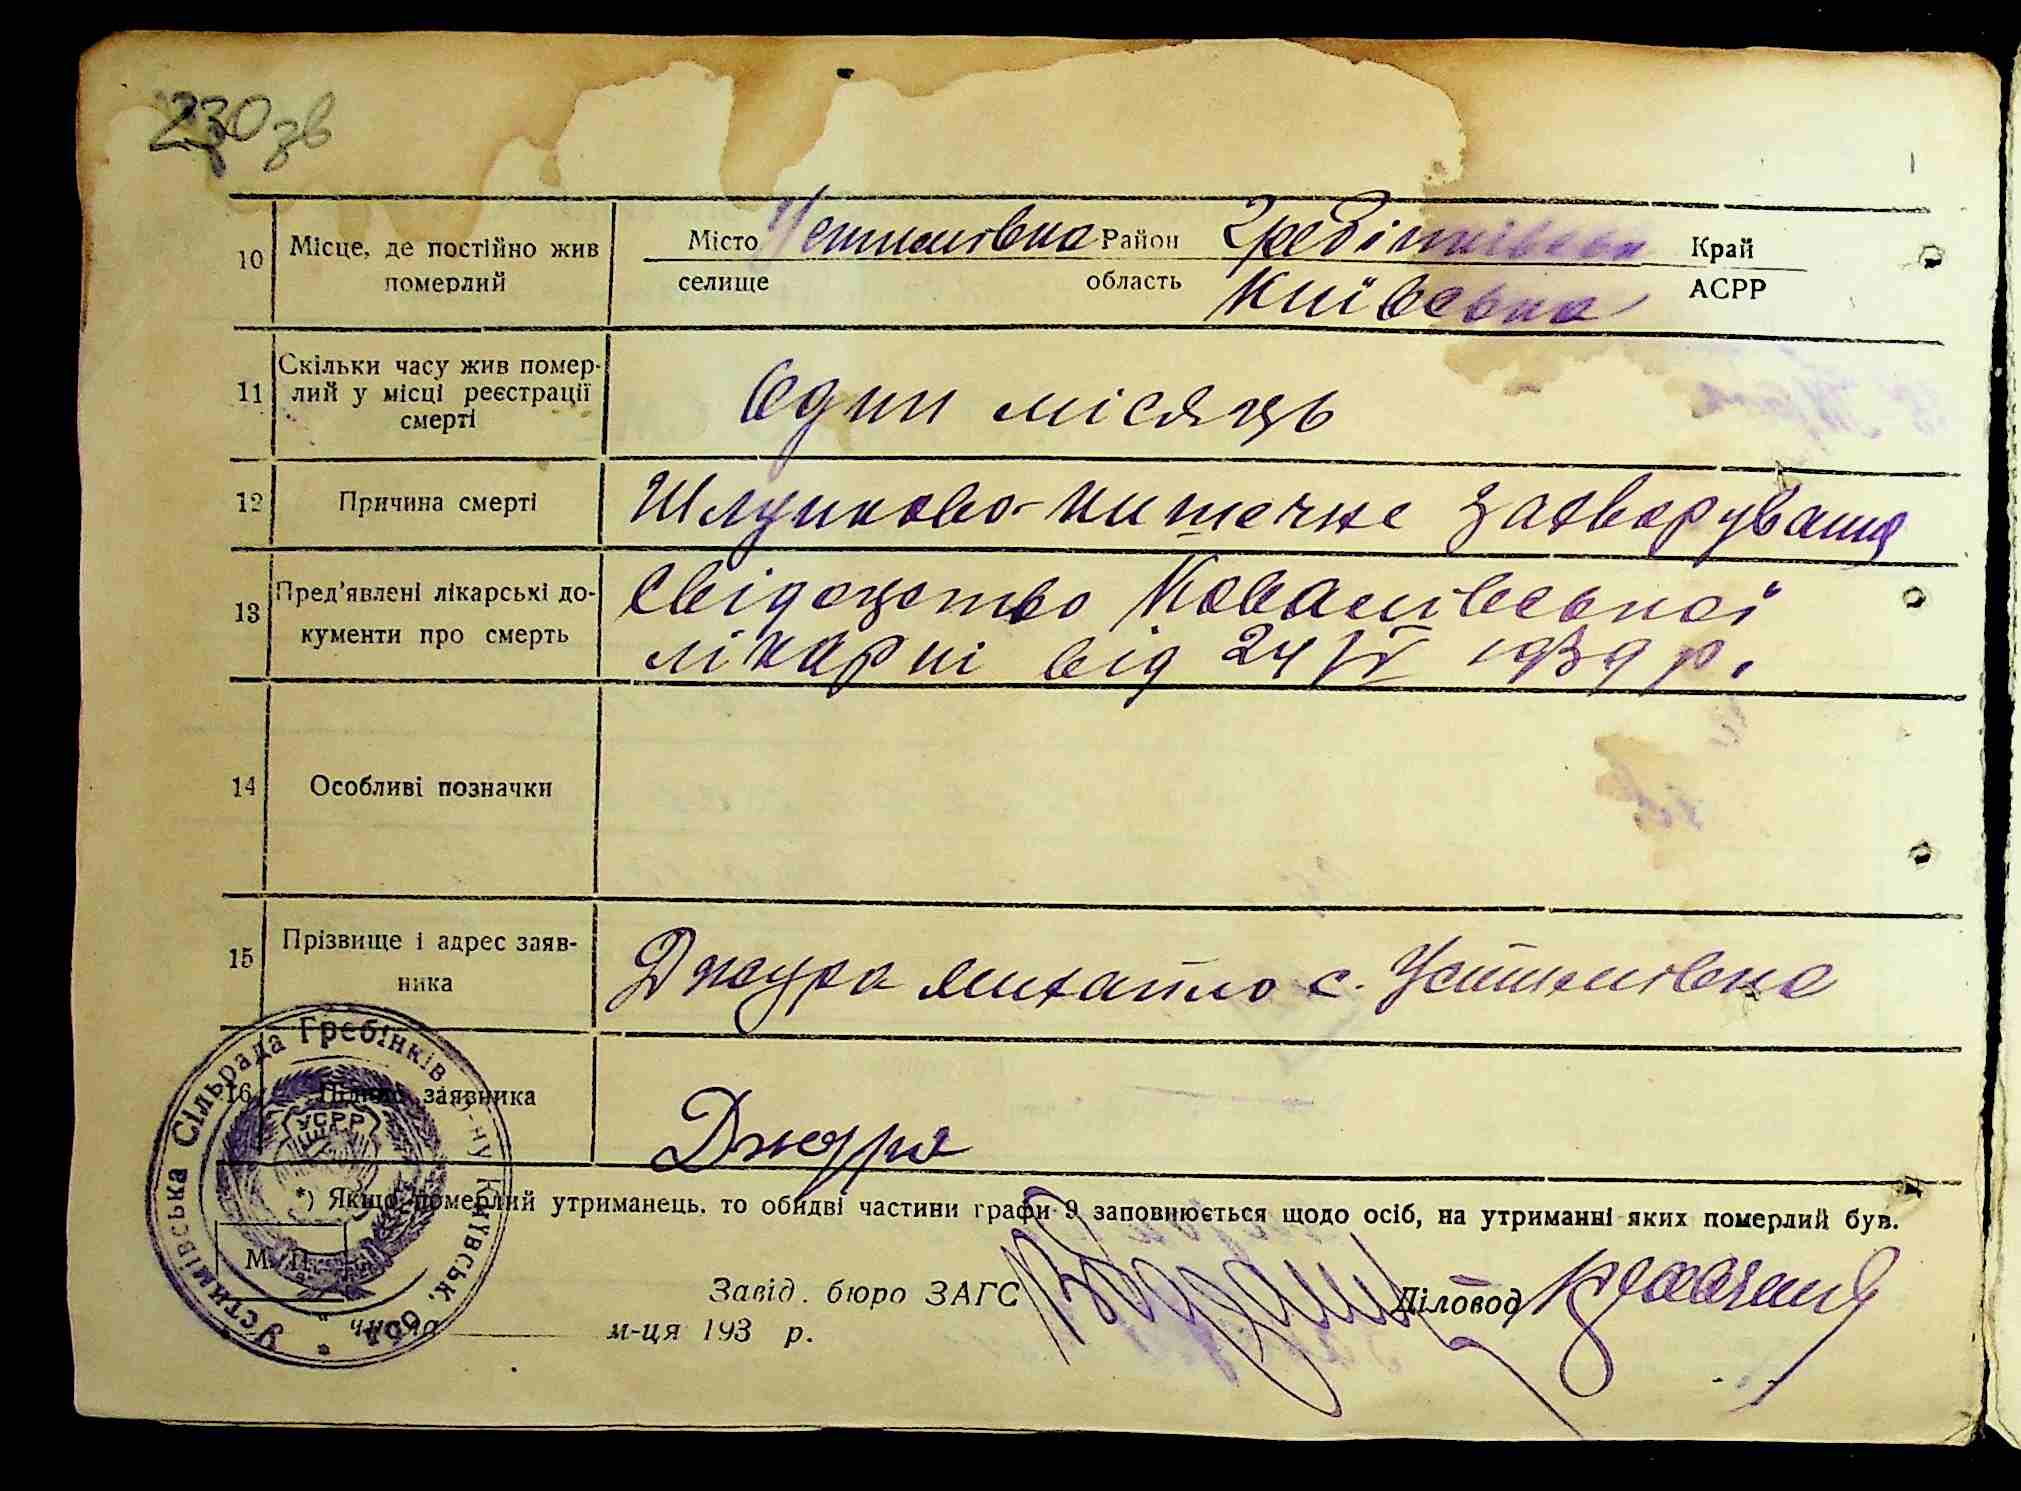 230 зв
10 Місце, де постійно жив померлий
Місто Устимівка Район Гребінківськ Край
селище область Київська АСРР
11 Скільки часу жив помер-
лий у місці реєстрації
смерті
Один місяць
12 Причина смерті Шлунково-кишечне захворування
13 Пред'явлені лікарські до-
кументи про смерть
Свідоцтво Ковалівської
лікарні від 24/IV 1939 р.
14 Особливі позначки
15 Прізвище і адрес заяв-
ника
Джура Михайло с. Устимівка
16 Підпис заявника
Джура
*) Якщо померлий утриманець, то обидві частини графи 9 заповнюється щодо осіб, на утриманні яких померлий був.
М. П.
Завід. бюро ЗАГС Діловод
" числа м-ця 193 р.
Устимівська Сільрада Гребінків. р-ну Київськ. обл.
УСРР